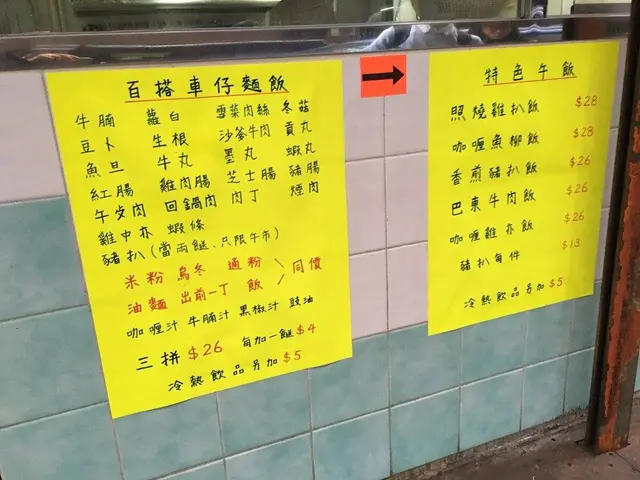 百搭車仔麵飯
牛腩 蘿白 雪菜肉絲 冬菇
豆卜 生根 沙爹牛肉 貢丸
魚旦 牛丸 墨丸 蝦丸
紅腸 雞肉腸 芝士腸 豬腸
午烾肉 回鍋肉 肉丁 煙肉
雞中亦 蝦條
豬扒(當兩餸、只限午市)
米粉 烏冬 通粉
油麵 出前一丁 飯 同價
咖喱汁 牛腩汁 黑椒汁 豉油
三拼 $26 每加一餸 $4
冷熱飲品另加 $5
特色午飯
照燒雞扒飯 $28
咖喱魚柳飯 $28
香煎豬扒飯 $26
巴東牛肉飯 $26
咖喱雞亦飯 $26
豬扒每件 $13
冷熱飲品另加 $5